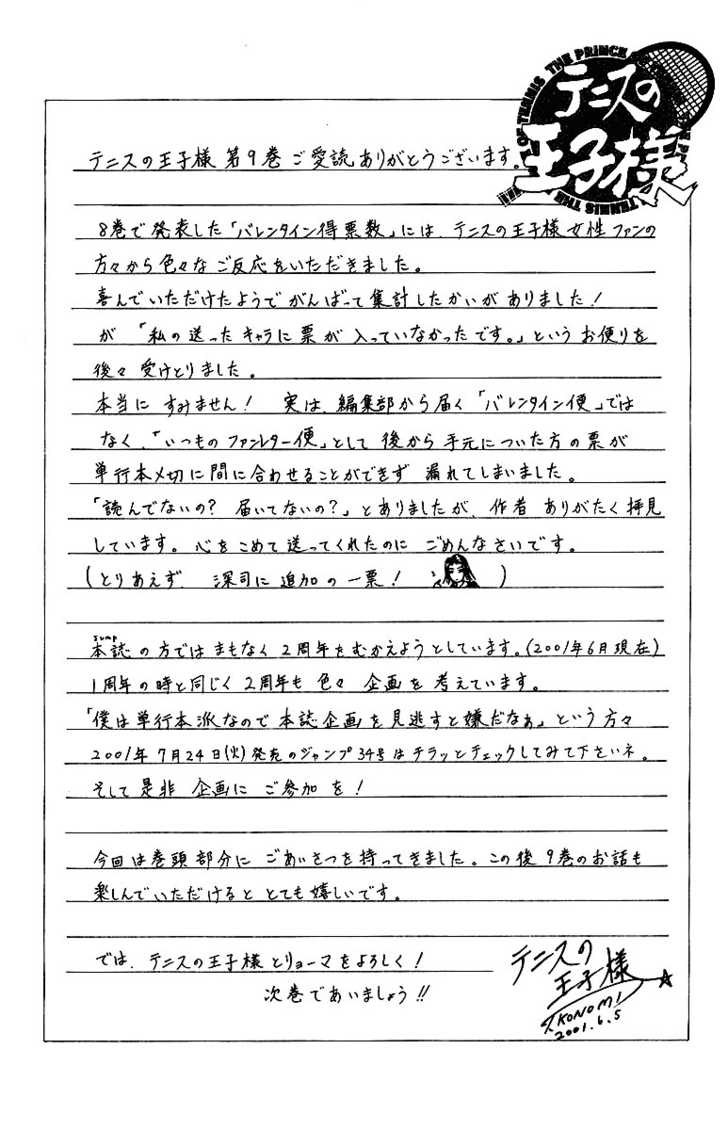 THE PRINCE OF TENNIS
テニスの
王子様
テニスの王子様 第9巻 ご愛読ありがとうございます。
8巻で発表した「バレンタイン得票数」には、テニスの王子様女性ファンの
方々から色々なご反応をいただきました。
喜んでいただけたようでがんばって集計したかいがありました!
が「私の送ったキャラに票が入っていなかったです。」というお便りを
後々受けとりました。
本当にすみません! 実は、編集部から届く「バレンタイン便」では
なく、「いつものファンレター便」として後から手元についた方の票が
単行本〆切に間に合わせることができず 漏れてしまいました。
「読んでないの? 届いてないの?」とありましたが、作者 ありがたく拝見
しています。心をこめて送ってくれたのに ごめんなさいです。
(とりあえず、深司に追加の一票! )
jump
本誌の方ではまもなく2周年をむかえようとしています。(2001年6月現在)
1周年の時と同じく2周年も色々 企画を考えています。
「僕は単行本派なので本誌企画を見逃すと嫌だなぁ」という方々
2001年7月24日(火)発売のジャンプ34号はチラッとチェックしてみて下さいネ。
そして是非 企画に ご参加を!
今回は巻頭部分に ごあいさつを持ってきました。この後9巻のお話も
楽しんでいただけると とても嬉しいです。
では、テニスの王子様とリョーマをよろしく!
次巻であいましょう!!
テニスの
王子様
T.KONOMI
2001.6.5